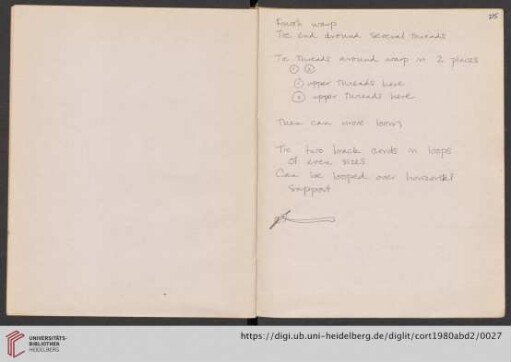 25
Finish warp
Tie end around several threads
Tie threads around warp in 2 places
① ②
① upper threads here
② upper threads here
Then can move loom
Tie two back cords in loops
of even sizes
Can be looped over horizontal
support
UNIVERSITÄTS-
BIBLIOTHEK
HEIDELBERG
https://digi.ub.uni-heidelberg.de/diglit/cort1980abd2/0027